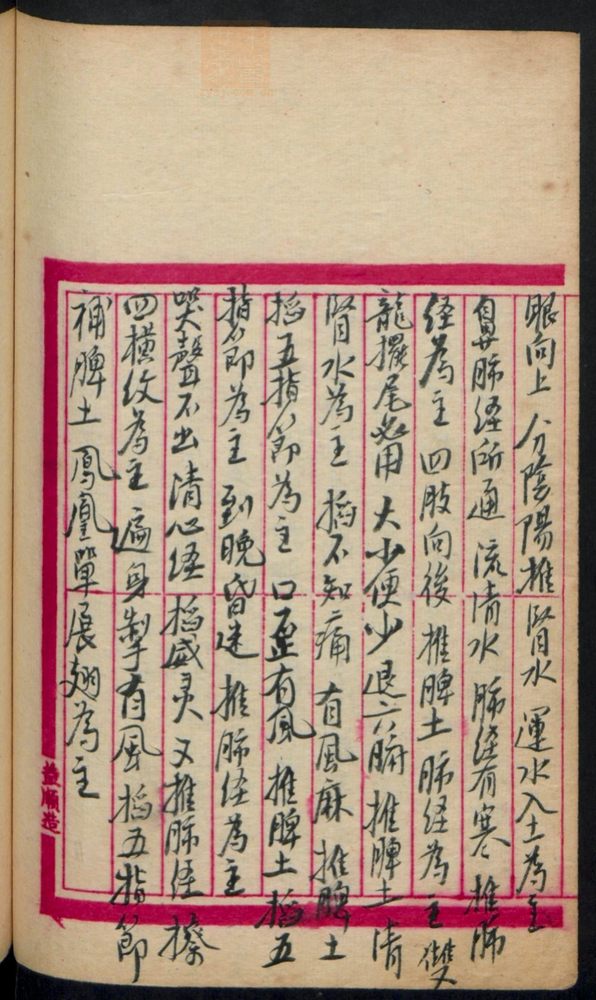 眼向上 分陰陽推腎水 運水入土為主
鼻肺经所通 流清水 肺经有寒 推肺
经為主 四肢向後 推脾土 肺经為主 雙
龍擺尾必用 大小便少 退六腑 推脾土 清
腎水為主 掐不知痛 有風麻 推脾土
掐五指節為主 口歪有風 推脾土 掐五
指節為主 到晚昏迷 推肺经為主
哭聲不出 清心经 掐威灵 又推肺经 揉
四横纹為主 遍身掣有風 掐五指節
補脾土 鳳凰單展翅為主
益順造